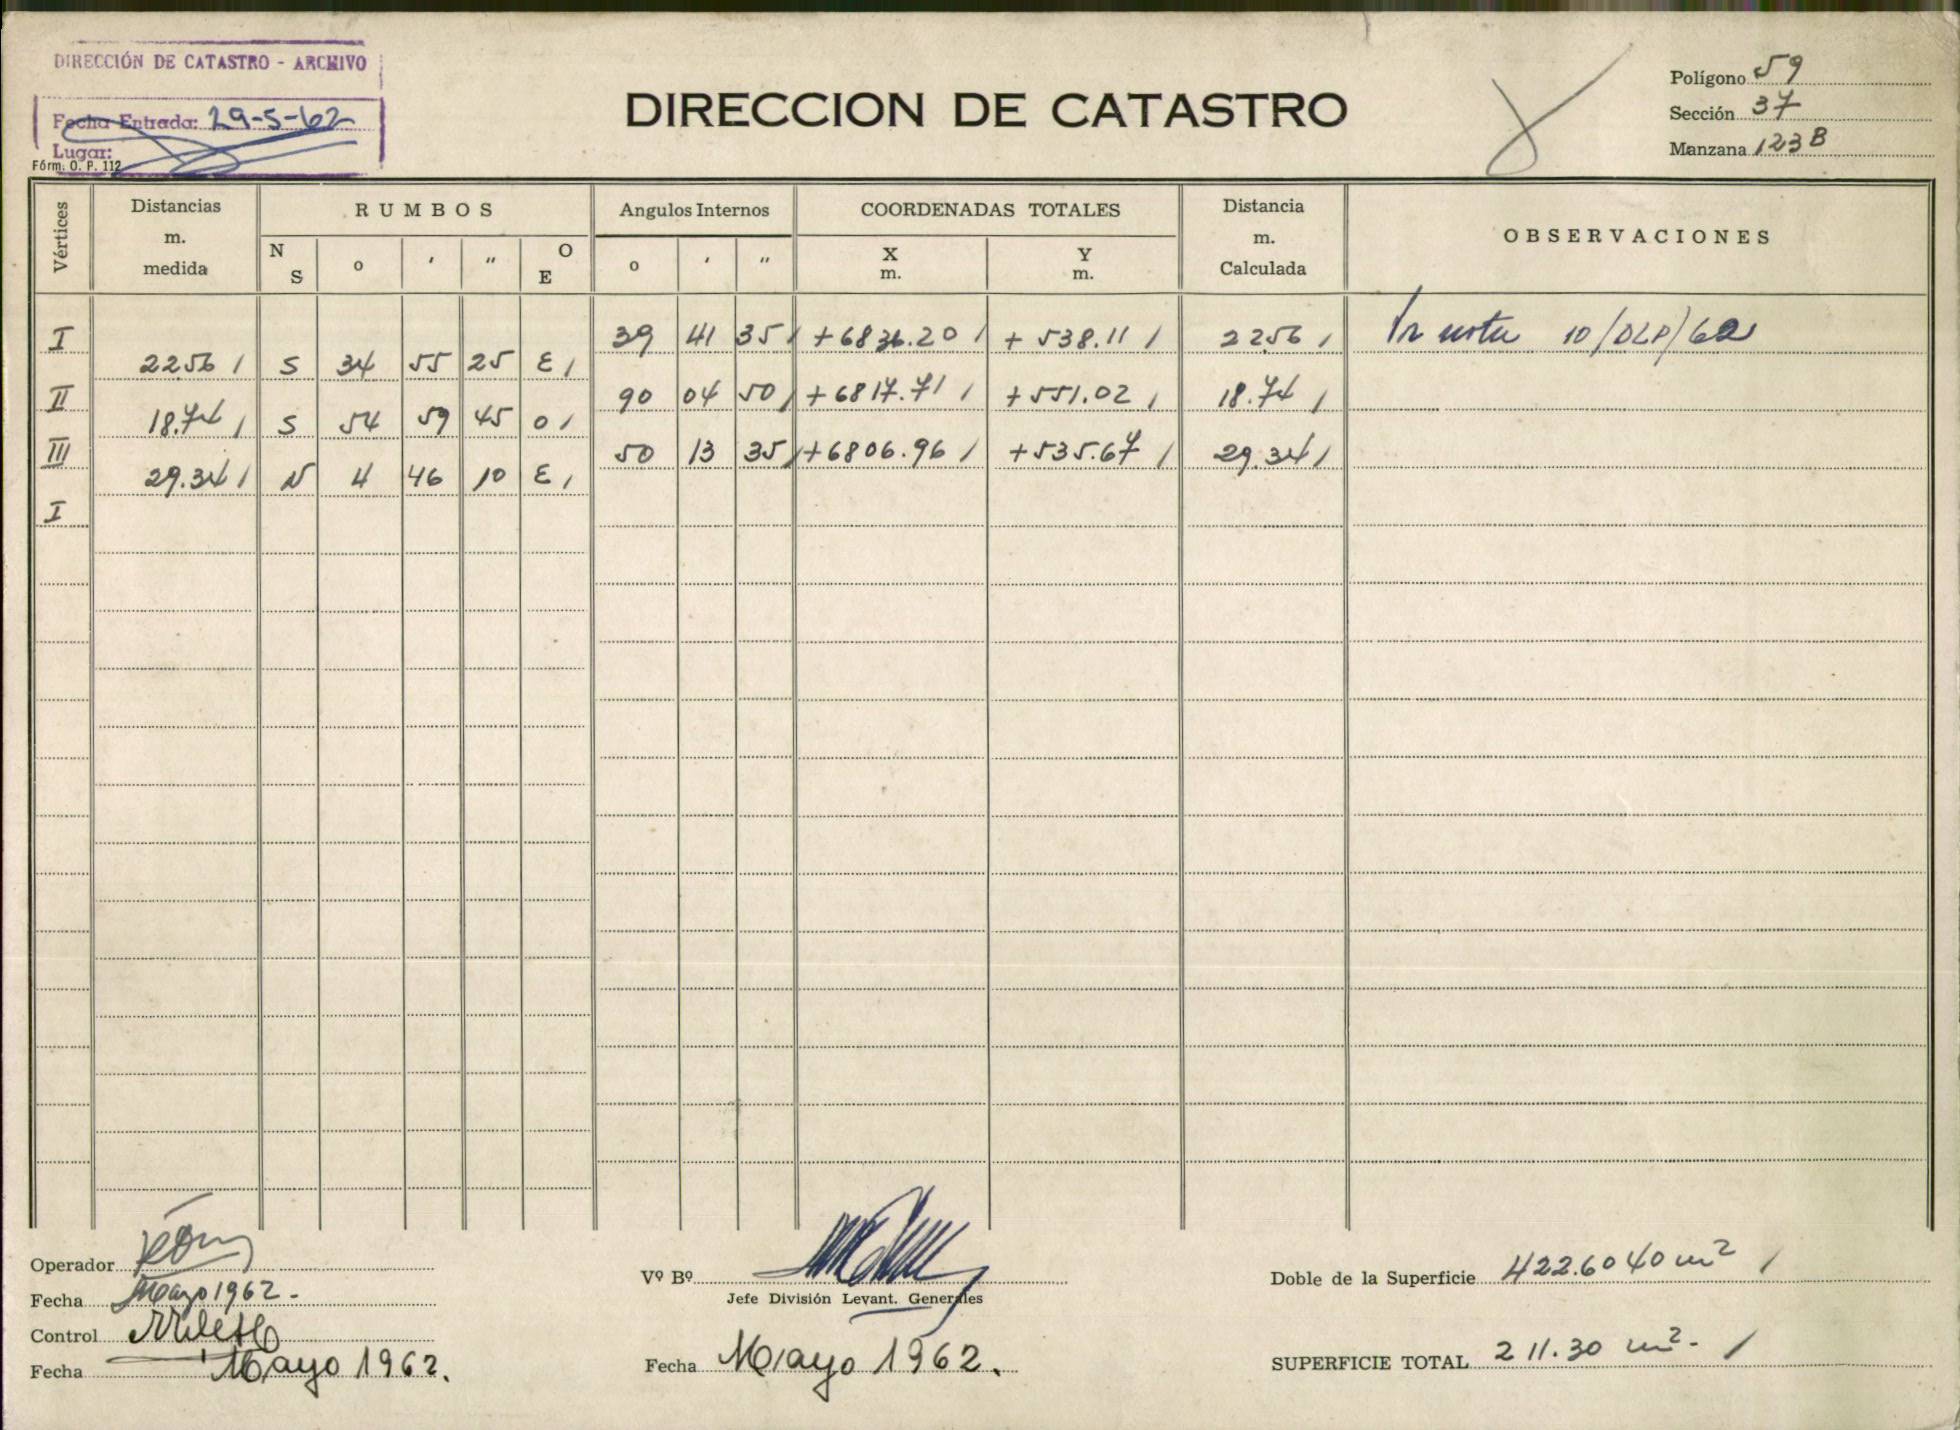 DIRECCIÓN DE CATASTRO - ARCHIVO
Fecha Entrada: 29-5-62
Lugar:
Fórm. O. P. 112
DIRECCION DE CATASTRO
Polígono 59
Sección 37
Manzana 123 B
Vértices Distancias m. medida RUMBOS Angulos Internos COORDENADAS TOTALES Distancia m. Calculada OBSERVACIONES
N S o ' " O E o ' " X m. Y m.
I 39 41 35 / +6836.20 / + 538.11 / 22.56 / nota 10/DLP/62
22.56 / S 34 55 25 E /
II 90 04 50 / +6817.71 / +551.02 / 18.74 /
18.74 / S 54 59 45 O /
III 50 13 35 / +6806.96 / +535.67 / 29.34 /
29.34 / N 4 46 10 E /
I
Operador
Fecha Mayo 1962.-
Control
Fecha Mayo 1962.
Vº Bº
Jefe División Levant. Generales
Fecha Mayo 1962.
Doble de la Superficie 422.6040 m² /
SUPERFICIE TOTAL 211.30 m².- /